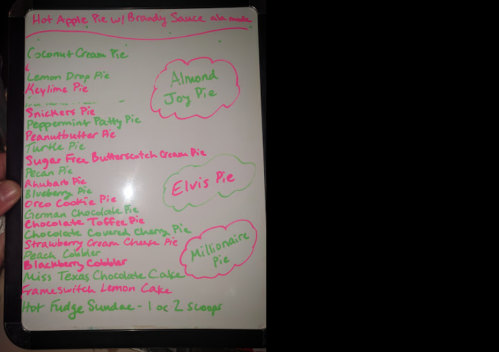 Hot Apple Pie w/ Brandy Sauce ala mode
Coconut Cream Pie
Lemon Drop Pie
Keylime Pie
Snickers Pie
Peppermint Patty Pie
Peanutbutter Pie
Turtle Pie
Sugar Free Butterscotch Cream Pie
Pecan Pie
Rhubarb Pie
Blueberry Pie
Oreo Cookie Pie
German Chocolate Pie
Chocolate Toffee Pie
Chocolate Covered Cherry Pie
Strawberry Cream Cheese Pie
Peach Cobbler
Blackberry Cobbler
Miss Texas Chocolate Cake
Frameswitch Lemon Cake
Hot Fudge Sundae - 1 or 2 scoops
Almond
Joy Pie
Elvis Pie
Millionaire
Pie